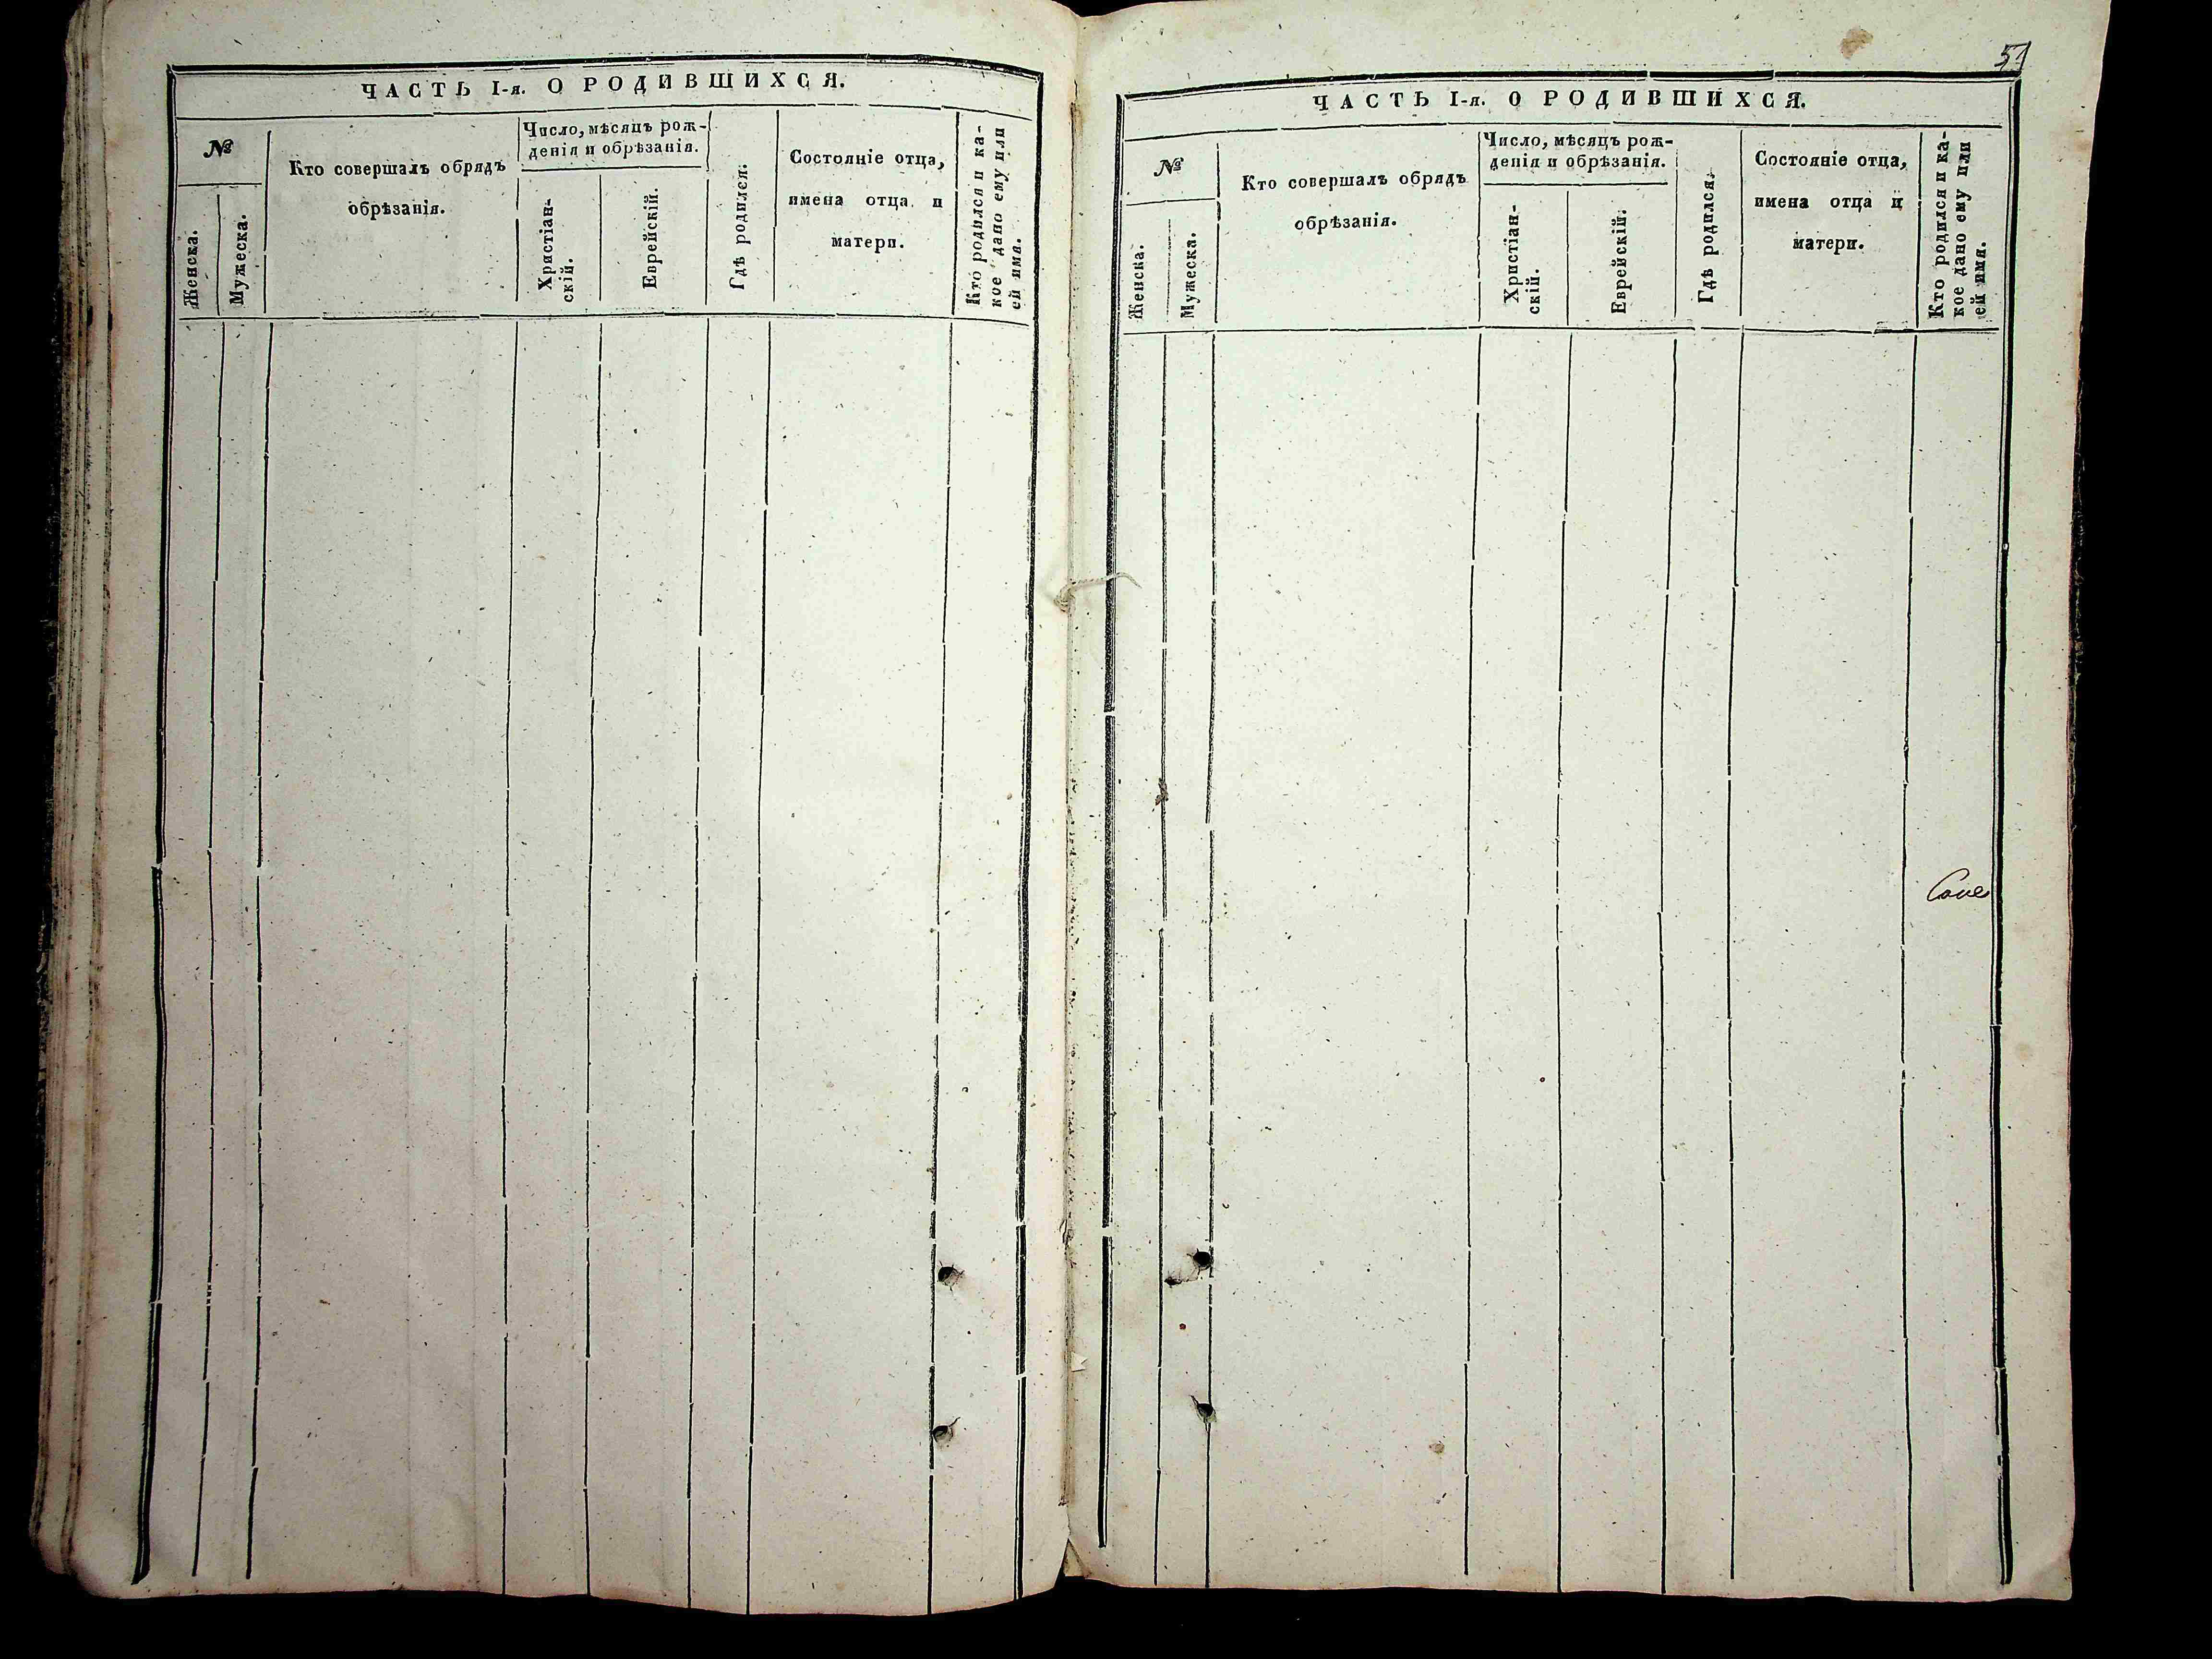 ЧАСТЬ I-я. О РОДИВШИХСЯ.
№
Женска.
Мужеска.
Кто совершалъ обрядъ
обрѣзанія.
Число, мѣсяцъ рож-
денія и обрѣзанія.
Христіан-
скій.
Еврейскій.
Гдѣ родился.
Состояніе отца,
имена отца и
матери.
Кто родился и ка-
кое дано ему или
ей имя.
51
ЧАСТЬ I-я. О РОДИВШИХСЯ.
№
Женска.
Мужеска.
Кто совершалъ обрядъ
обрѣзанія.
Число, мѣсяцъ рож-
денія и обрѣзанія.
Христіан-
скій.
Еврейскій.
Гдѣ родился.
Состояніе отца,
имена отца и
матери.
Кто родился и ка-
кое дано ему или
ей имя.